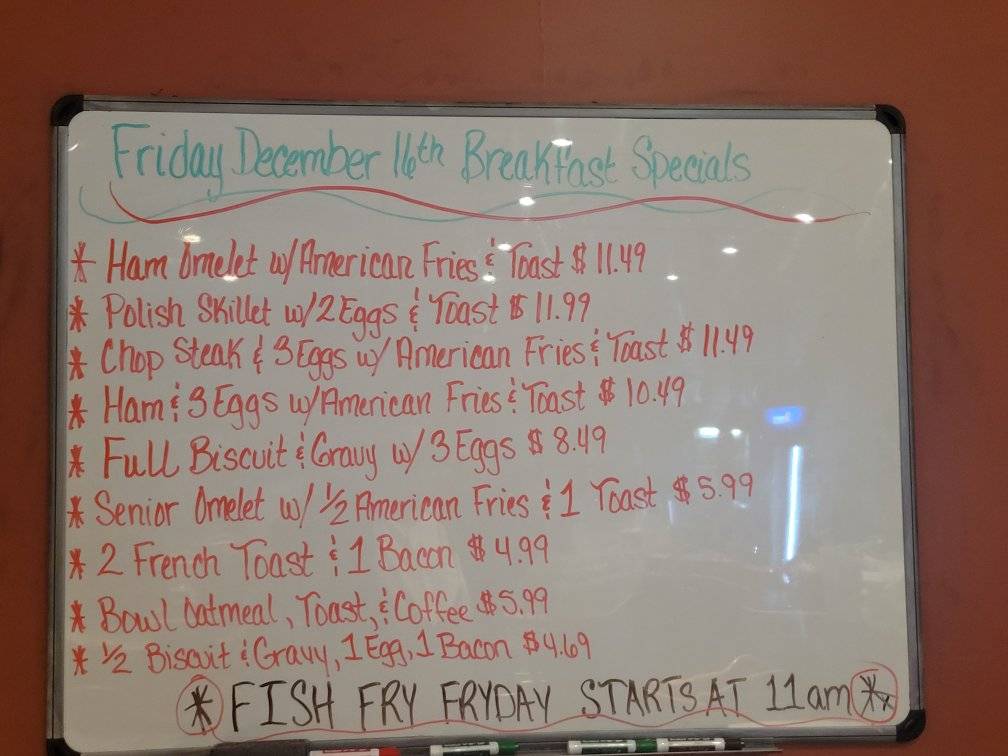 Friday December 16th Breakfast Specials
* Ham Omelet w/American Fries & Toast $ 11.49
* Polish Skillet w/2 Eggs & Toast $ 11.99
* Chop Steak & 3 Eggs w/ American Fries & Toast $ 11.49
* Ham & 3 Eggs w/American Fries & Toast $ 10.49
* Full Biscuit & Gravy w/ 3 Eggs $ 8.49
* Senior Omelet w/ ½ American Fries & 1 Toast $ 5.99
* 2 French Toast & 1 Bacon $ 4.99
* Bowl Oatmeal, Toast, & Coffee $5.99
* ½ Biscuit & Gravy, 1 Egg, 1 Bacon $4.69
* FISH FRY FRYDAY STARTS AT 11am *